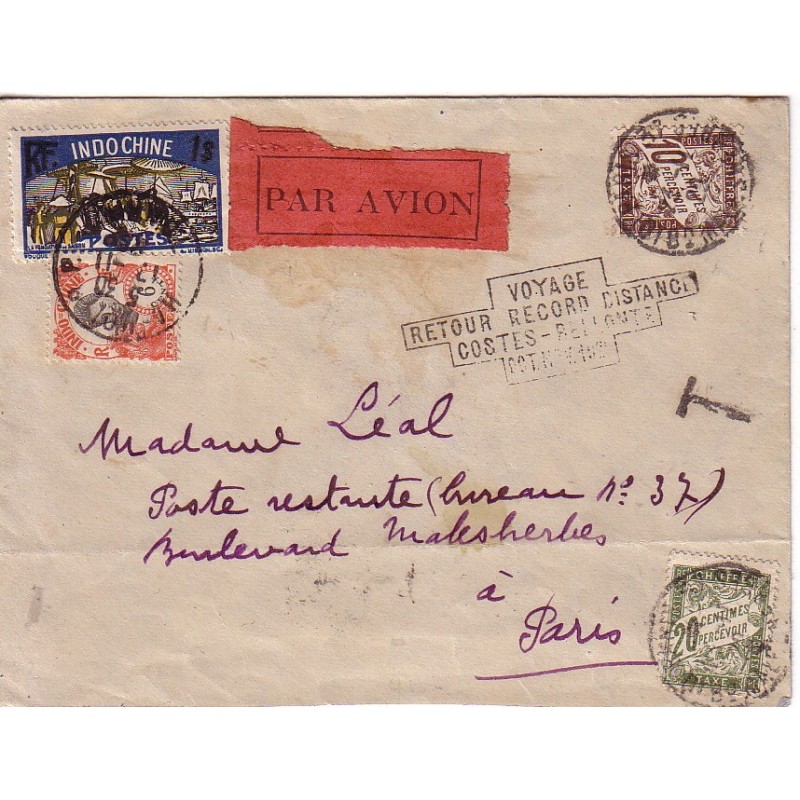 RF. INDOCHINE 1$
POSTES
INDO-CHINE
R
POSTES
PAR AVION
10 CENTIMES
À PERCEVOIR
POSTES
TAXE
VOYAGE
RETOUR RECORD DISTANCE
COSTES - BELLONTE
OCT. NOV.
T
Madame Léal
Poste restante (bureau No. 37)
Boulevard Malesherbes
à
Paris
CHIFFRE
POSTES
20 CENTIMES
À PERCEVOIR
TAXE